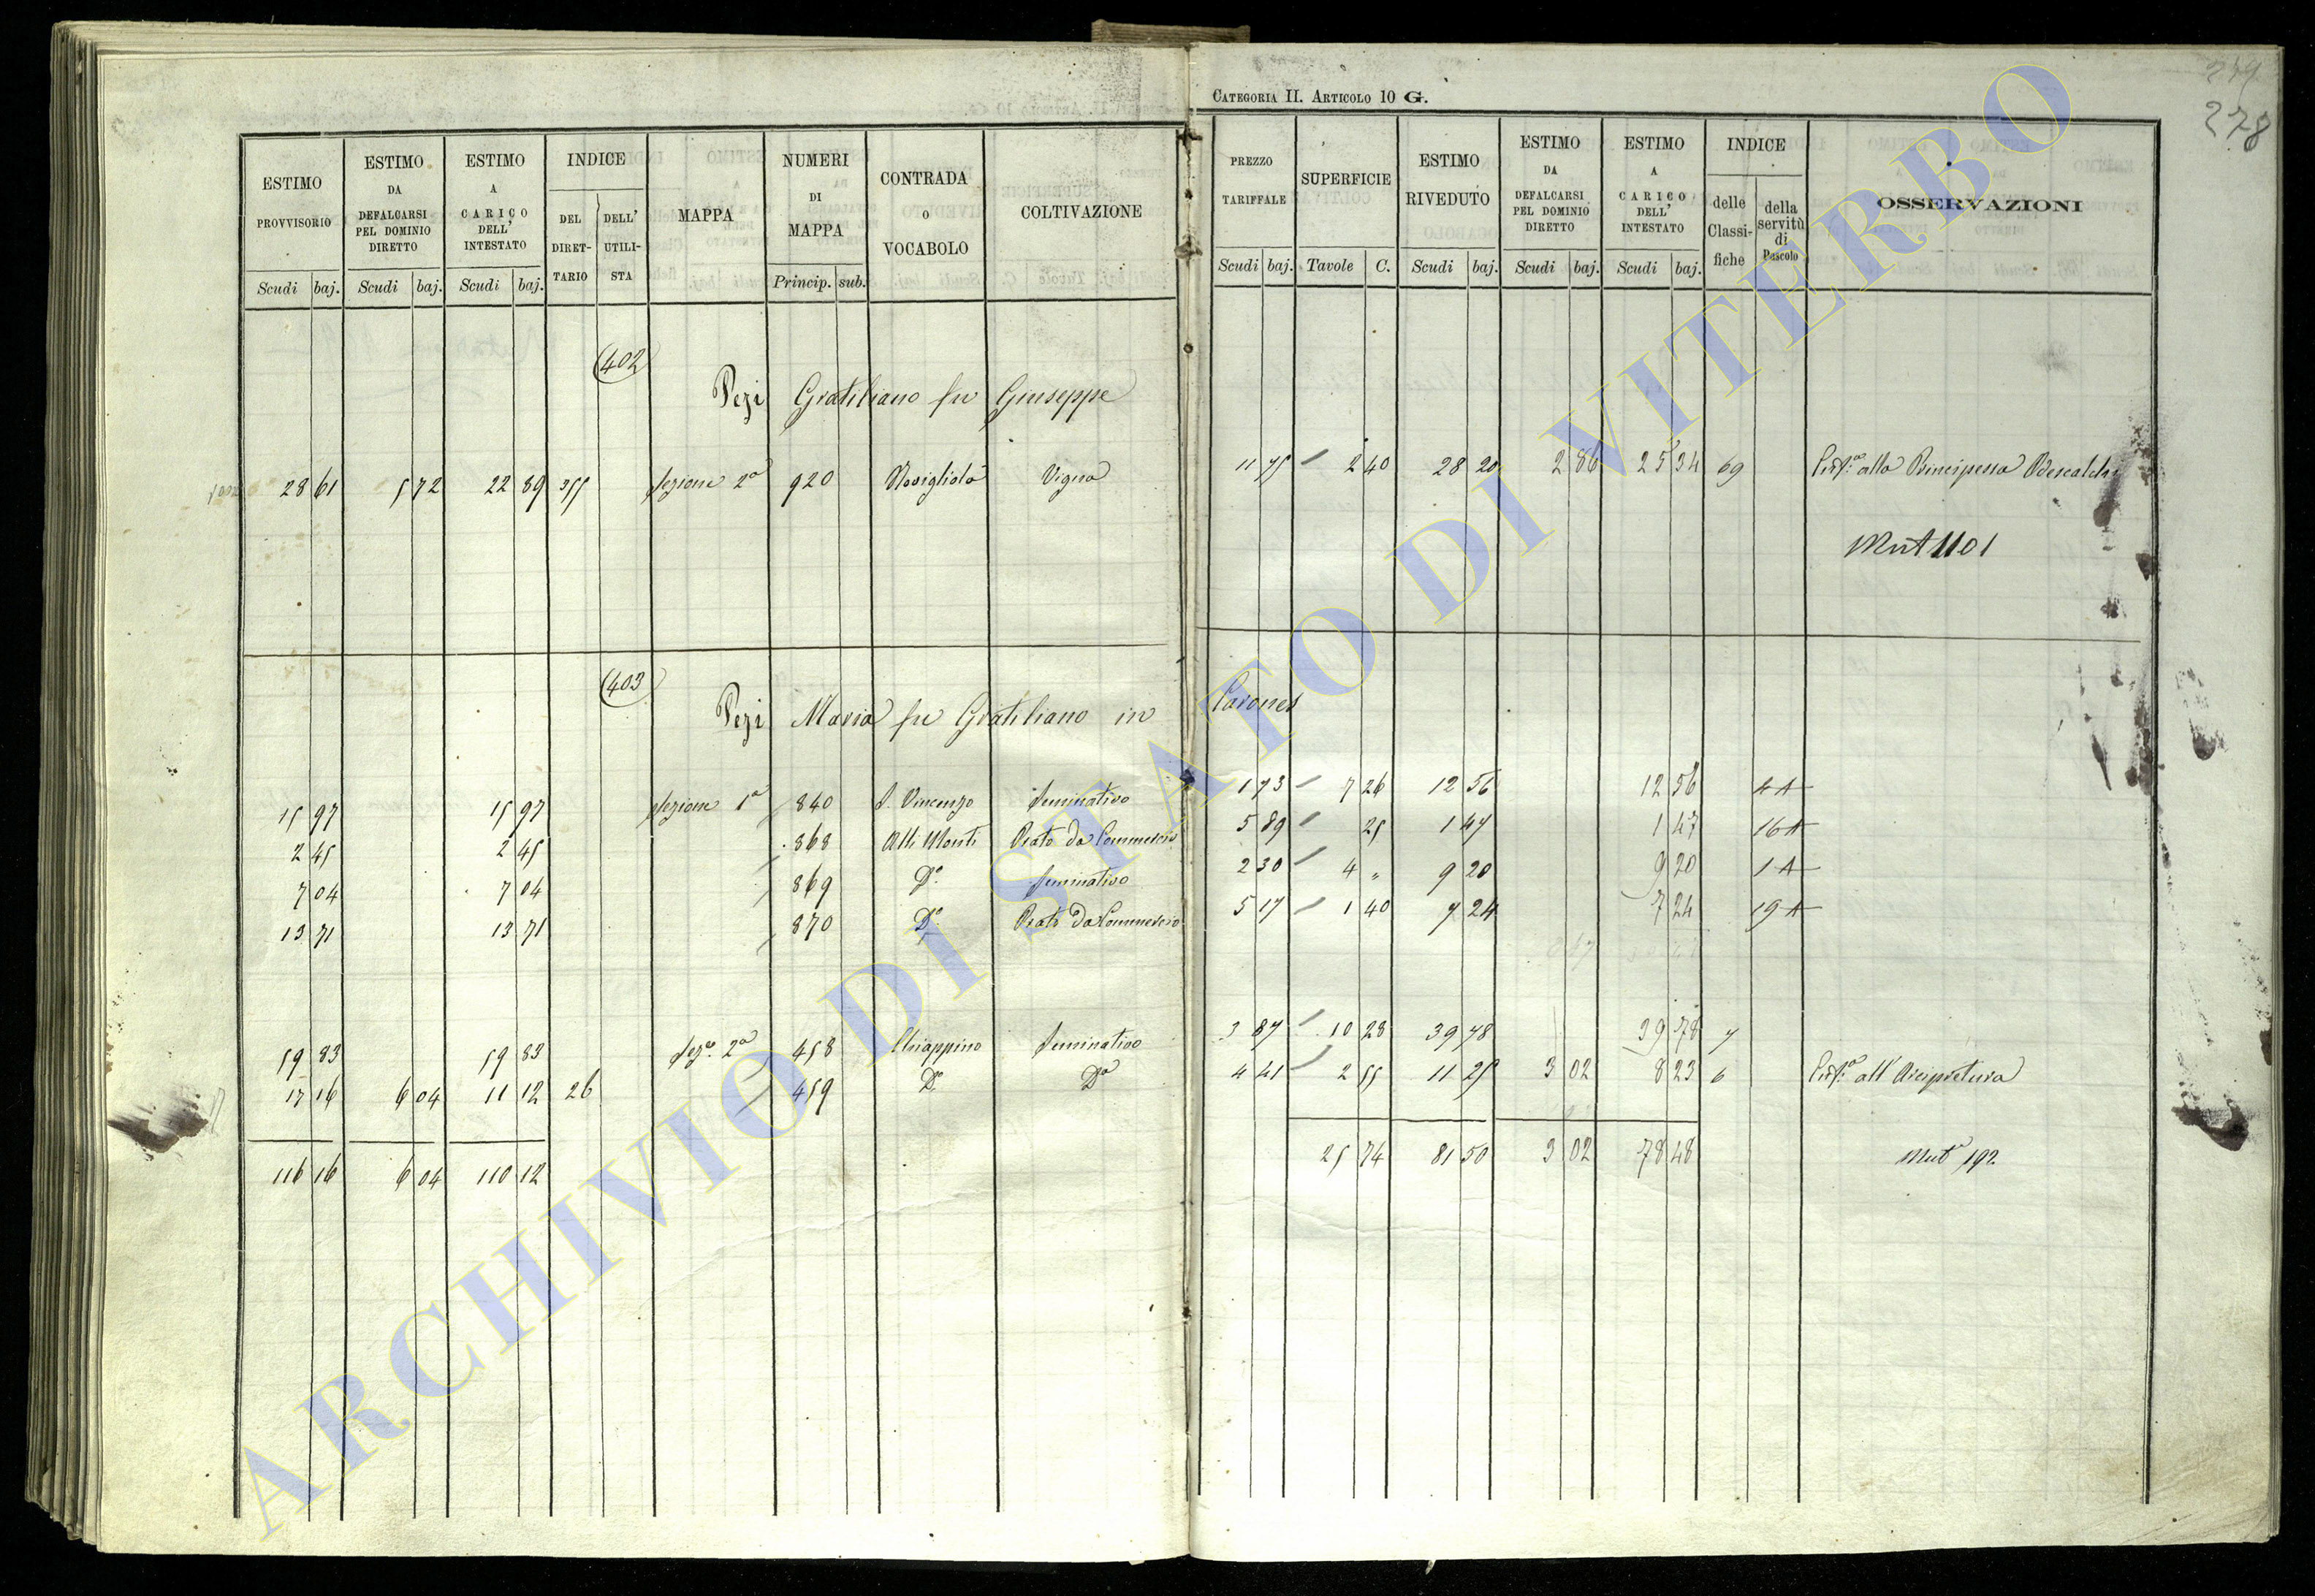 CATEGORIA II. ARTICOLO 10 G.
278
ESTIMO PROVVISORIO
ESTIMO DA DEFALCARSI PEL DOMINIO DIRETTO
ESTIMO A CARICO DELL' INTESTATO
INDICE
DEL DIRETTARIO
DELL' UTILISTA
MAPPA
NUMERI DI MAPPA
CONTRADA O VOCABOLO
COLTIVAZIONE
Scudi baj. Scudi baj. Scudi baj. Princip. sub.
PREZZO TARIFFALE
SUPERFICIE
ESTIMO RIVEDUTO
ESTIMO DA DEFALCARSI PEL DOMINIO DIRETTO
ESTIMO A CARICO DELL' INTESTATO
INDICE
delle Classifiche
della servitù di Pascolo
OSSERVAZIONI
Scudi baj. Tavole C. Scudi baj. Scudi baj. Scudi baj.
(402)
Pezi Gratiliano fu Giuseppe
28 61 5 72 22 89 355 Sezione 2a 920 Vigna 11 75 2 40 28 20 2 86 25 34 69 alla Principessa
Mut 1101
(403)
Pezi Maria fu Gratiliano in
15 97 15 97 Sezione 1a 840 S. Vincenzo Seminativo 1 73 7 26 12 56 12 56 4 A
2 45 2 45 868 Alli Monti Prato da Commercio 5 89 25 1 47 1 47 16 A
7 04 7 04 869 Do. Seminativo 2 30 4 " 9 20 9 20 1 A
13 71 13 71 870 Do. Prato da Commercio 5 17 1 40 7 24 7 24 19 A
59 83 59 83 Sezo. 2a 458 Chiappino Seminativo 3 87 10 28 39 78 39 78 7
17 16 6 04 11 12 26 459 Do Do 4 41 2 55 11 25 3 02 8 23 6 all' Arcipretura
116 16 6 04 110 12 25 74 81 50 3 02 78 48 Mut 192
ARCHIVIO DI STATO DI VITERBO